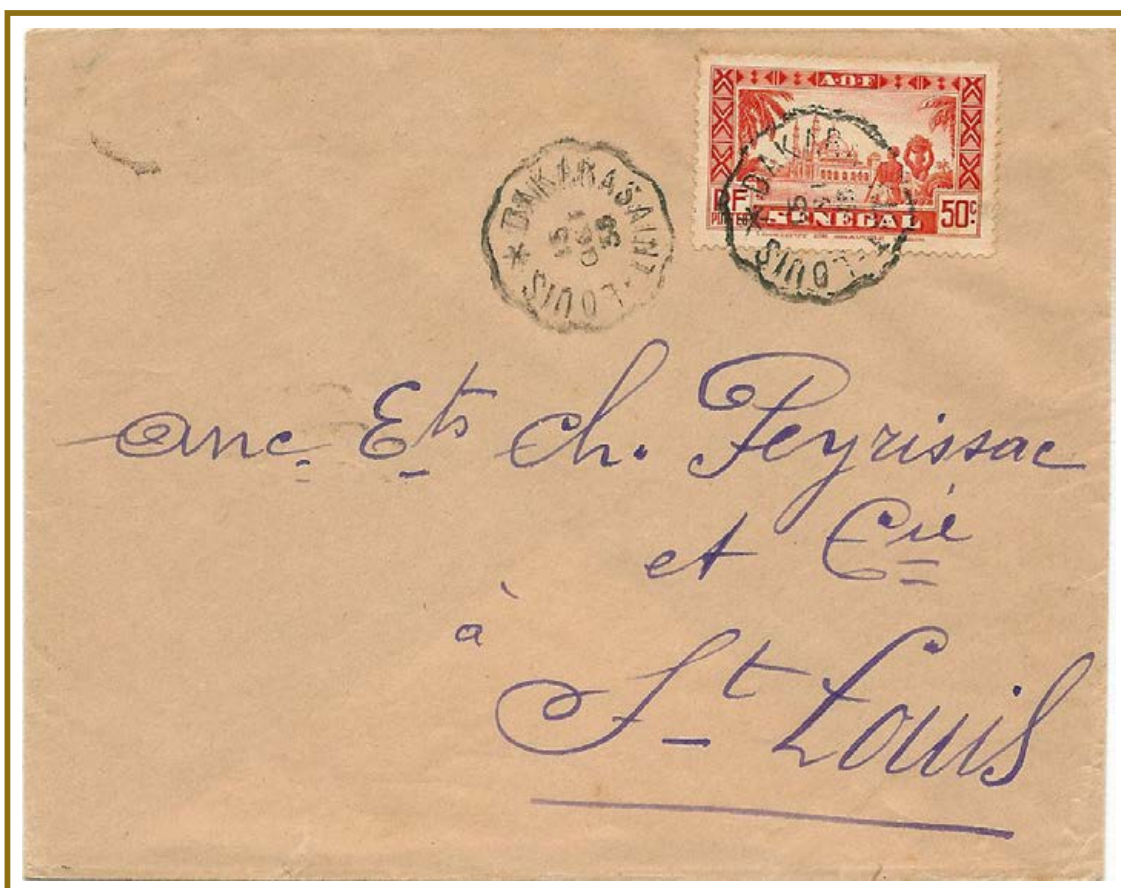 A·O·F
RF
POSTES
SÉNÉGAL
50c.
* DAKAR A SAINT-LOUIS
* DAKAR
LOUIS
anc. Ets Ch. Peyrissac
et Cie
à
St Louis